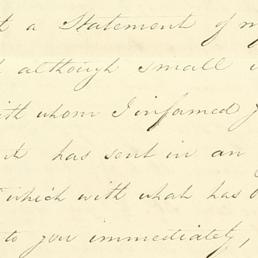 t a Statement of my
although small
with whom I informed
has sent in an
which with what has
to you immediately,